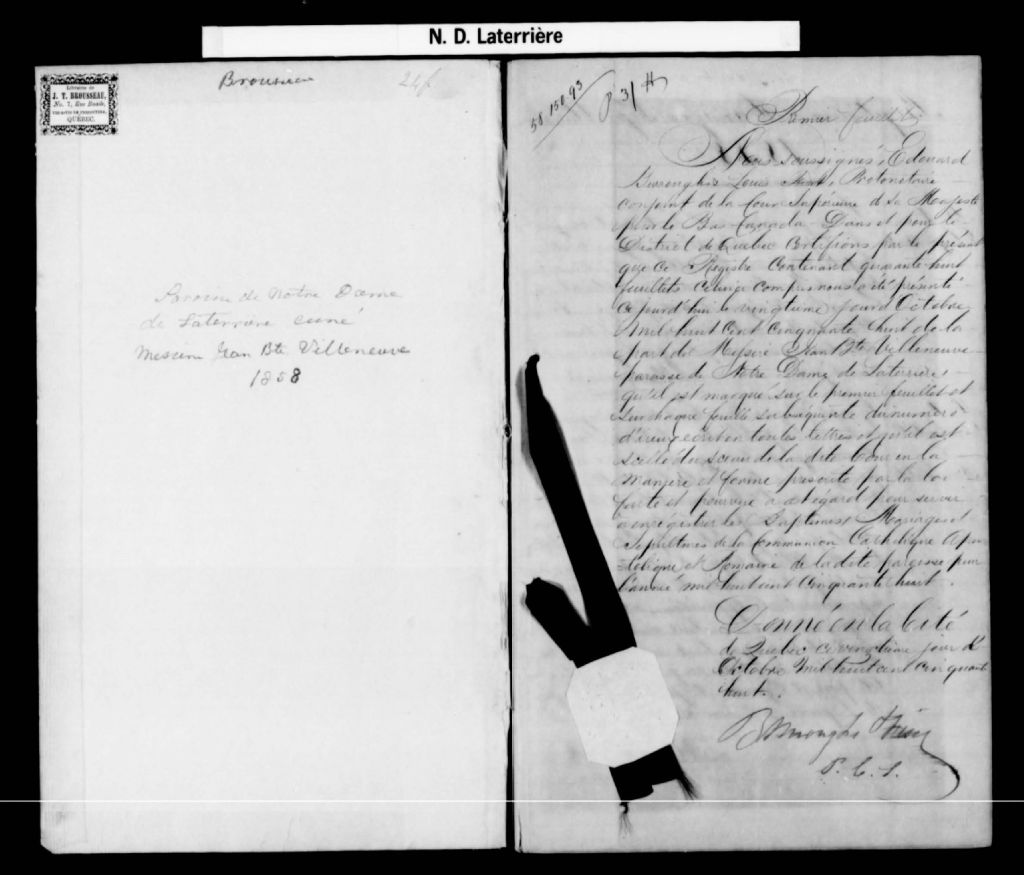 N. D. Laterrière
Librairie de
J. T. BROUSSEAU,
No. 7, Rue Buade,
QUÉBEC.
Paroisse de Notre Dame
de Laterrière
Messire Jean Bte Villeneuve
1858
58 150.93
P 31 H
Premier feuillet
Nous soussignés, Edouard
Burroughs Louis Fiset, Protonotaire
conjoint de la Cour Supérieure de Sa Majesté
pour le Bas Canada Dans et pour le
District de Québec Certifions par le présent
que ce Registre Contenant quarante huit
feuillets celui ci compris nous a été présenté
ce jourd'hui le vingtième jour d'Octobre
Mil huit cent cinquante huit de la
part de Messire Jean Bte Villeneuve
paroisse de Notre Dame de Laterrière,
qu'il est marqué sur le premier feuillet et
sur chaque feuillet subséquente du numero
d'iceux écrit en toutes lettres et qu'il est
scellé du sceau de la dite Cour en la
Manière et forme prescrite par la loi
faite et pourvue à cet égard pour servir
à enrégistrer les Baptêmes Mariages et
Sépultures de la Communion Catholique Apos
tolique et Romaine de la dite paroisse pour
l'année mil huit cent cinquante huit.
Donné en la Cité
de Québec ce vingtième jour d'
Octobre Mil huit cent cinquante
huit.
Burroughs Fiset
P. C. S.